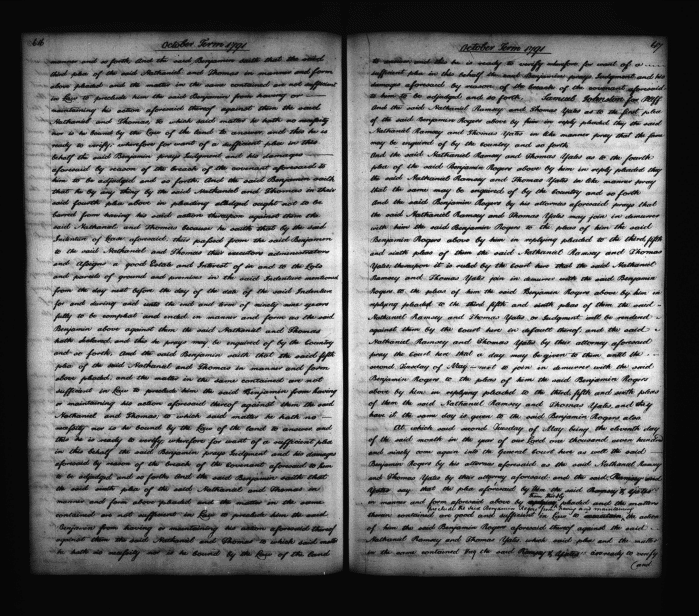 66
October Term 1791
manner and so forth. And the said Benjamin saith that the said
third plea of the said Nathaniel and Thomas in manner and form
above pleaded and the matter in the same contained are not sufficient
in Law to preclude him the said Benjamin from having or
maintaining his action aforesaid thereof against them the said
Nathaniel and Thomas, to which said matter he hath no necessity
nor is he bound by the Law of the land to answer, and this he is
ready to verify wherefore for want of a sufficient plea in this
behalf the said Benjamin prays Judgment and his damages
aforesaid by reason of the breach of the covenant aforesaid to
him to be adjudged and so forth. And the said Benjamin saith
that he by any thing by the said Nathaniel and Thomas in their
said fourth plea above in pleading alledged ought not to be
barred from having his said action thereupon against them the
said Nathaniel and Thomas because he saith that by the said
Indenture of Lease aforesaid there passed from the said Benjamin
to the said Nathaniel and Thomas their executors administrators
and Assigns a good Estate and Interest of in and to the Lots
and parcels of ground and premises in the said Indenture mentioned
from the day next before the day of the date of the said Indenture
for and during and unto the end and term of ninety nine years
fully to be compleat and ended in manner and form as the said
Benjamin above against them the said Nathaniel and Thomas
hath declared, and this he prays may be inquired of by the Country
and so forth. And the said Benjamin saith that the said fifth
plea of the said Nathaniel and Thomas in manner and form
above pleaded, and the matter in the same contained are not
sufficient in Law to preclude him the said Benjamin from having
or maintaining his action aforesaid thereof against them the said
Nathaniel and Thomas, to which said matter he hath no
necessity nor is he bound by the Law of the land to answer and
this he is ready to verify, wherefore for want of a sufficient plea
in this behalf the said Benjamin prays Judgment and his damages
aforesaid by reason of the breach of the Covenant aforesaid to him
to be adjudged and so forth And the said Benjamin saith that
the said sixth plea of the said Nathaniel and Thomas in
manner and form above pleaded and the matter in the same
contained are not sufficient in Law to preclude him the said
Benjamin from having or maintaining his action aforesaid thereof
against them the said Nathaniel and Thomas to which said matter
he hath no necessity nor is he bound by the Law of the land
October Term 1791
67
to answer and this he is ready to verify wherefore for want of a
sufficient plea in this behalf the said Benjamin prays Judgment and his
damages aforesaid by reason of the breach of the covenant aforesaid
to him to be adjudged and so forth. Samuel Johnston for Plff
And the said Nathaniel Ramsey and Thomas Yates as to the first plea
of the said Benjamin Rogers above by him in reply pleaded they the said
Nathaniel Ramsey and Thomas Yates in like manner pray that the same
may be enquired of by the country and so forth
And the said Nathaniel Ramsey and Thomas Yates as to the fourth
plea of the said Benjamin Rogers above by him in reply pleaded they
the said Nathaniel Ramsey and Thomas Yates in like manner pray
that the same may be enquired of by the Country and so forth
And the said Benjamin Rogers by his attorney aforesaid prays that
the said Nathaniel Ramsey and Thomas Yates may join in demurrer
with him the said Benjamin Rogers to the pleas of him the said
Benjamin Rogers above by him in replying pleaded to the third fifth
and sixth pleas of them the said Nathaniel Ramsey and Thomas
Yates, thereupon it is ruled by the Court here that the said Nathaniel
Ramsey and Thomas Yates join in demurrer with the said Benjamin
Rogers to the pleas of him the said Benjamin Rogers above by him in
replying pleaded to the third fifth and sixth pleas of them the said
Nathaniel Ramsey and Thomas Yates, or Judgment will be rendered
against them by the Court here in default thereof, and the said
Nathaniel Ramsey and Thomas Yates by their attorney aforesaid
pray the Court here that a day may be given to them until the
second Tuesday of May next to join in demurrer with the said
Benjamin Rogers to the pleas of him the said Benjamin Rogers
above by him in replying pleaded to the third fifth and sixth pleas
of them the said Nathaniel Ramsey and Thomas Yates, and they
have it the same day is given to the said Benjamin Rogers also.
At which said second Tuesday of May being the eleventh day
of the said month in the year of our Lord one thousand seven hundred
and ninety come again into the General Court here as well the said
Benjamin Rogers by his attorney aforesaid as the said Nathaniel Ramsey
and Thomas Yates by their attorney aforesaid and the said Ramsey and
Yates say that the plea aforesaid by him the said Ramsey & Yates
in manner and form aforesaid above pleaded and the matter
preclude the said Benjamin Rogers from having and maintaining
therein contained are good and sufficient in Law to the action
of him the said Benjamin Rogers aforesaid thereof against the said
Nathaniel Ramsey and Thomas Yates which said plea and the matter
in the same contained they the said Ramsey & Yates are ready to verify
(and